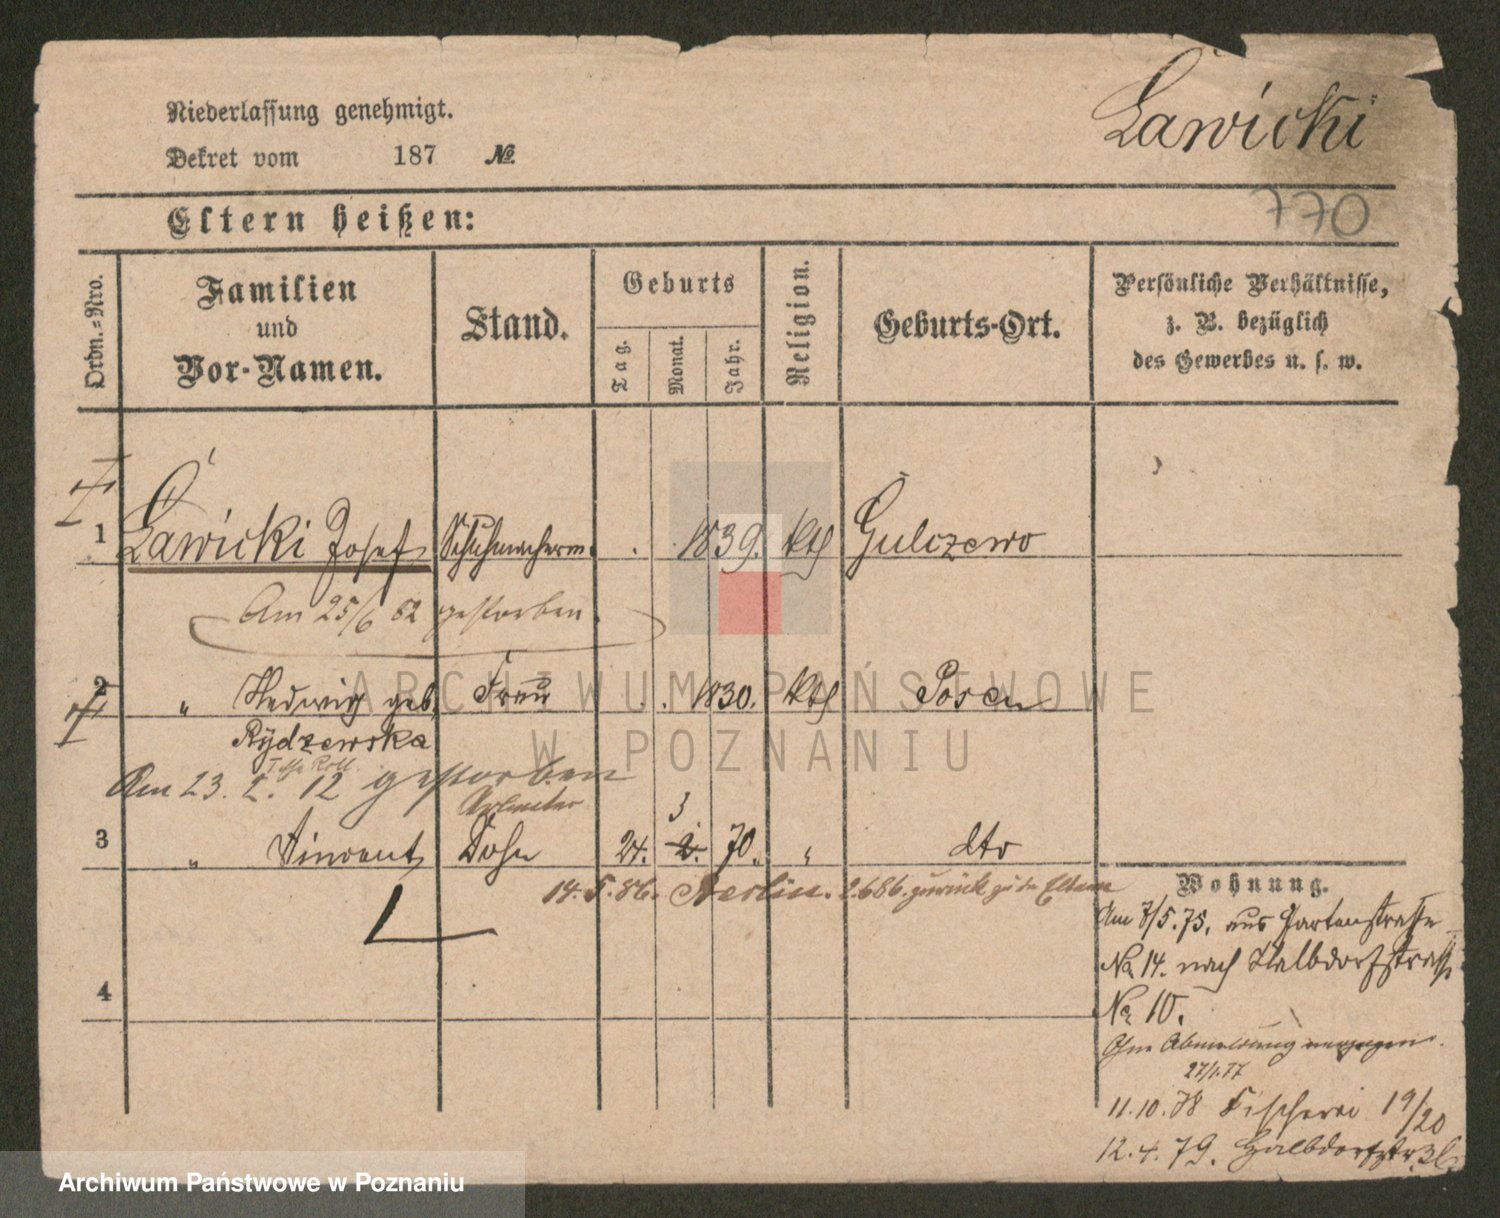 Niederlassung genehmigt.
Dekret vom 187 №
Ławicki
770
Eltern heißen:
Ordn.=Nro.
Familien
und
Vor-Namen.
Stand.
Geburts
Tag.
Monat.
Jahr.
Religion.
Geburts-Ort.
Persönliche Verhältnisse,
z. B. bezüglich
des Gewerbes u. s. w.
1 Ławicki Josef Schuhmacherm. 1839. kth Gulczewo
Am 25/6 82 gestorben
2 " Hedwig geb. Frau 1830. kth Posen
Rÿdzewska
Am 23. 2. 12 gestorben
Arbeiter
3
3 " Vincent Sohn 24. 2. 70. " dto
14. 5. 86. Berlin. 2.6 86. zurück zu den Eltern
4
Wohnung.
Am 7/5. 75. aus Gartenstraße
No 14. nach Halbdorfstraße
No 10.
Ohne Abmeldung verzogen.
27/1.77
11.10.78 Fischerei 19/20
12.4.79. Halbdorfstr.
ARCHIWUM PAŃSTWOWE
W POZNANIU
Archiwum Państwowe w Poznaniu